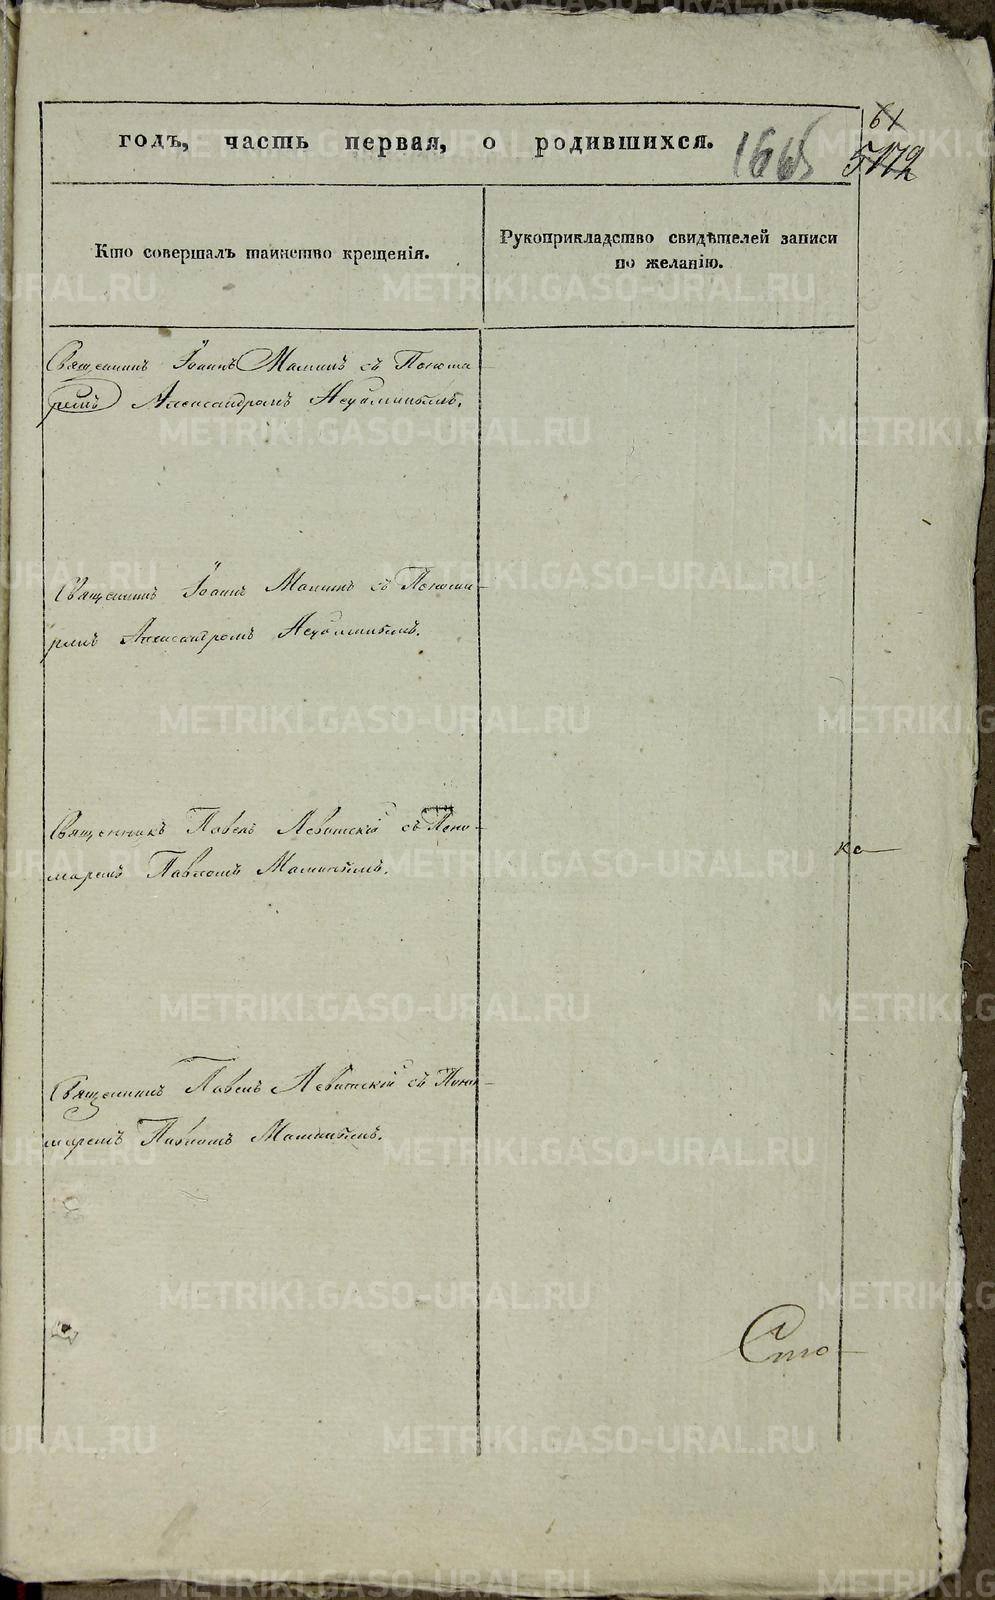 61
годъ, часть первая, о родившихся.
Кто совершалъ таинство крещенія.
Рукоприкладство свидѣтелей записи
по желанію.
Священникъ Іоаннъ Маминъ съ Понома
ремъ Александромъ
Священникъ Іоаннъ Маминъ съ Понома-
ремъ Александромъ
Священникъ Павелъ Левитскій съ Поно-
маремъ Павломъ Маминымъ.
ка
Священникъ Павелъ Левитскій съ Поно-
маремъ Павломъ Маминымъ.
Сто-
METRIKI.GASO-URAL.RU